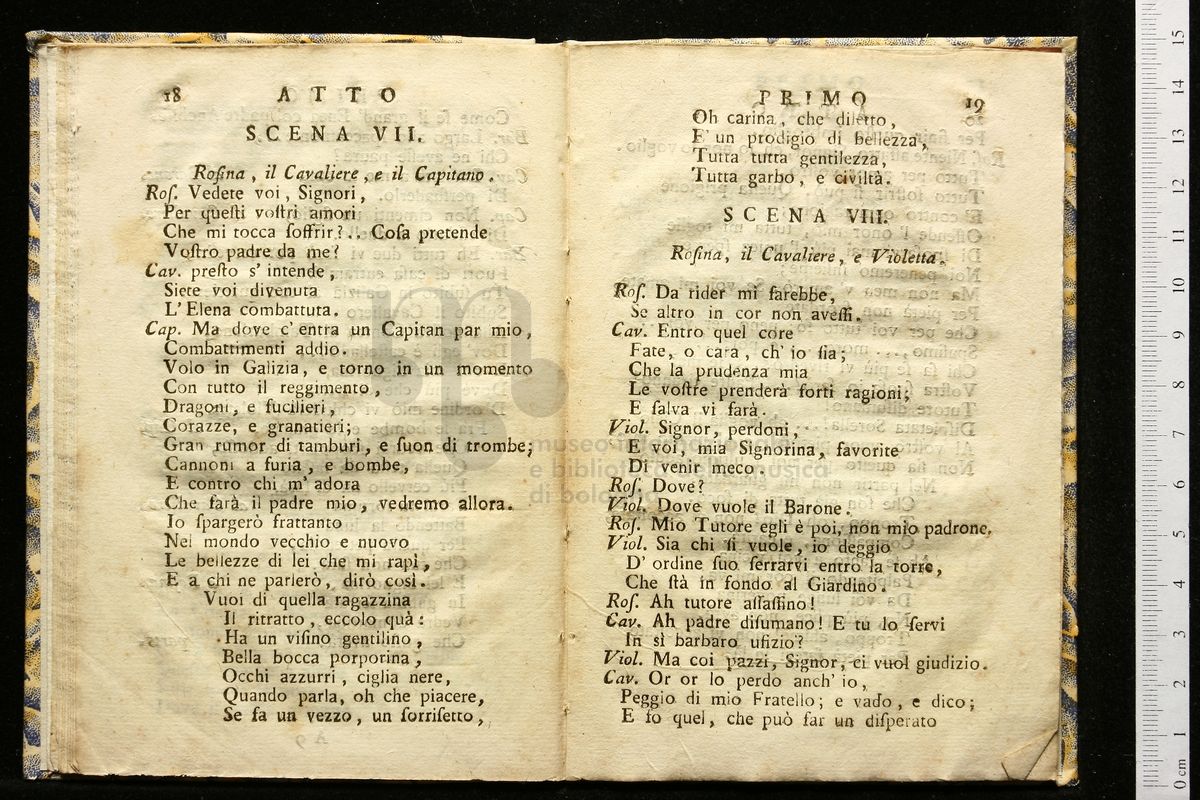 18 ATTO
SCENA VII.
Roſina, il Cavaliere, e il Capitano.
Roſ. Vedete voi, Signori,
Per queſti voſtri amori
Che mi tocca ſoffrir?.. Coſa pretende
Voſtro padre da me?
Cav. preſto s' intende,
Siete voi divenuta
L'Elena combattuta.
Cap. Ma dove c' entra un Capitan par mio,
Combattimenti addio.
Volo in Galizia, e torno in un momento
Con tutto il reggimento,
Dragoni, e fucilieri,
Corazze, e granatieri;
Gran rumor di tamburi, e ſuon di trombe;
Cannoni a furia, e bombe,
E contro chi m' adora
Che farà il padre mio, vedremo allora.
Io ſpargerò frattanto
Nel mondo vecchio e nuovo
Le bellezze di lei che mi rapì,
E a chi ne parlerò, dirò così.
Vuoi di quella ragazzina
Il ritratto, eccolo quà:
Ha un viſino gentilino,
Bella bocca porporina,
Occhi azzurri, ciglia nere,
Quando parla, oh che piacere,
Se fa un vezzo, un ſorriſetto,
PRIMO 19
Oh carina, che diletto,
E' un prodigio di bellezza,
Tutta tutta gentilezza,
Tutta garbo, e civiltà.
SCENA VIII.
Roſina, il Cavaliere, e Violetta.
Roſ. Da rider mi farebbe,
Se altro in cor non aveſſi.
Cav. Entro quel core
Fate, o cara, ch' io ſia;
Che la prudenza mia
Le voſtre prenderà forti ragioni;
E ſalva vi farà.
Viol. Signor, perdoni,
E voi, mia Signorina, favorite
Di venir meco.
Roſ. Dove?
Viol. Dove vuole il Barone.
Roſ. Mio Tutore egli è poi, non mio padrone.
Viol. Sia chi ſi vuole, io deggio
D' ordine ſuo ſerrarvi entro la torre,
Che ſtà in fondo al Giardino.
Roſ. Ah tutore aſſaſſino!
Cav. Ah padre diſumano! E tu lo ſervi
In sì barbaro ufizio?
Viol. Ma coi pazzi, Signor, ci vuol giudizio.
Cav. Or or lo perdo anch' io,
Peggio di mio Fratello; e vado, e dico;
E fo quel, che può far un diſperato
museo internazionale
e biblioteca della musica
di bologna